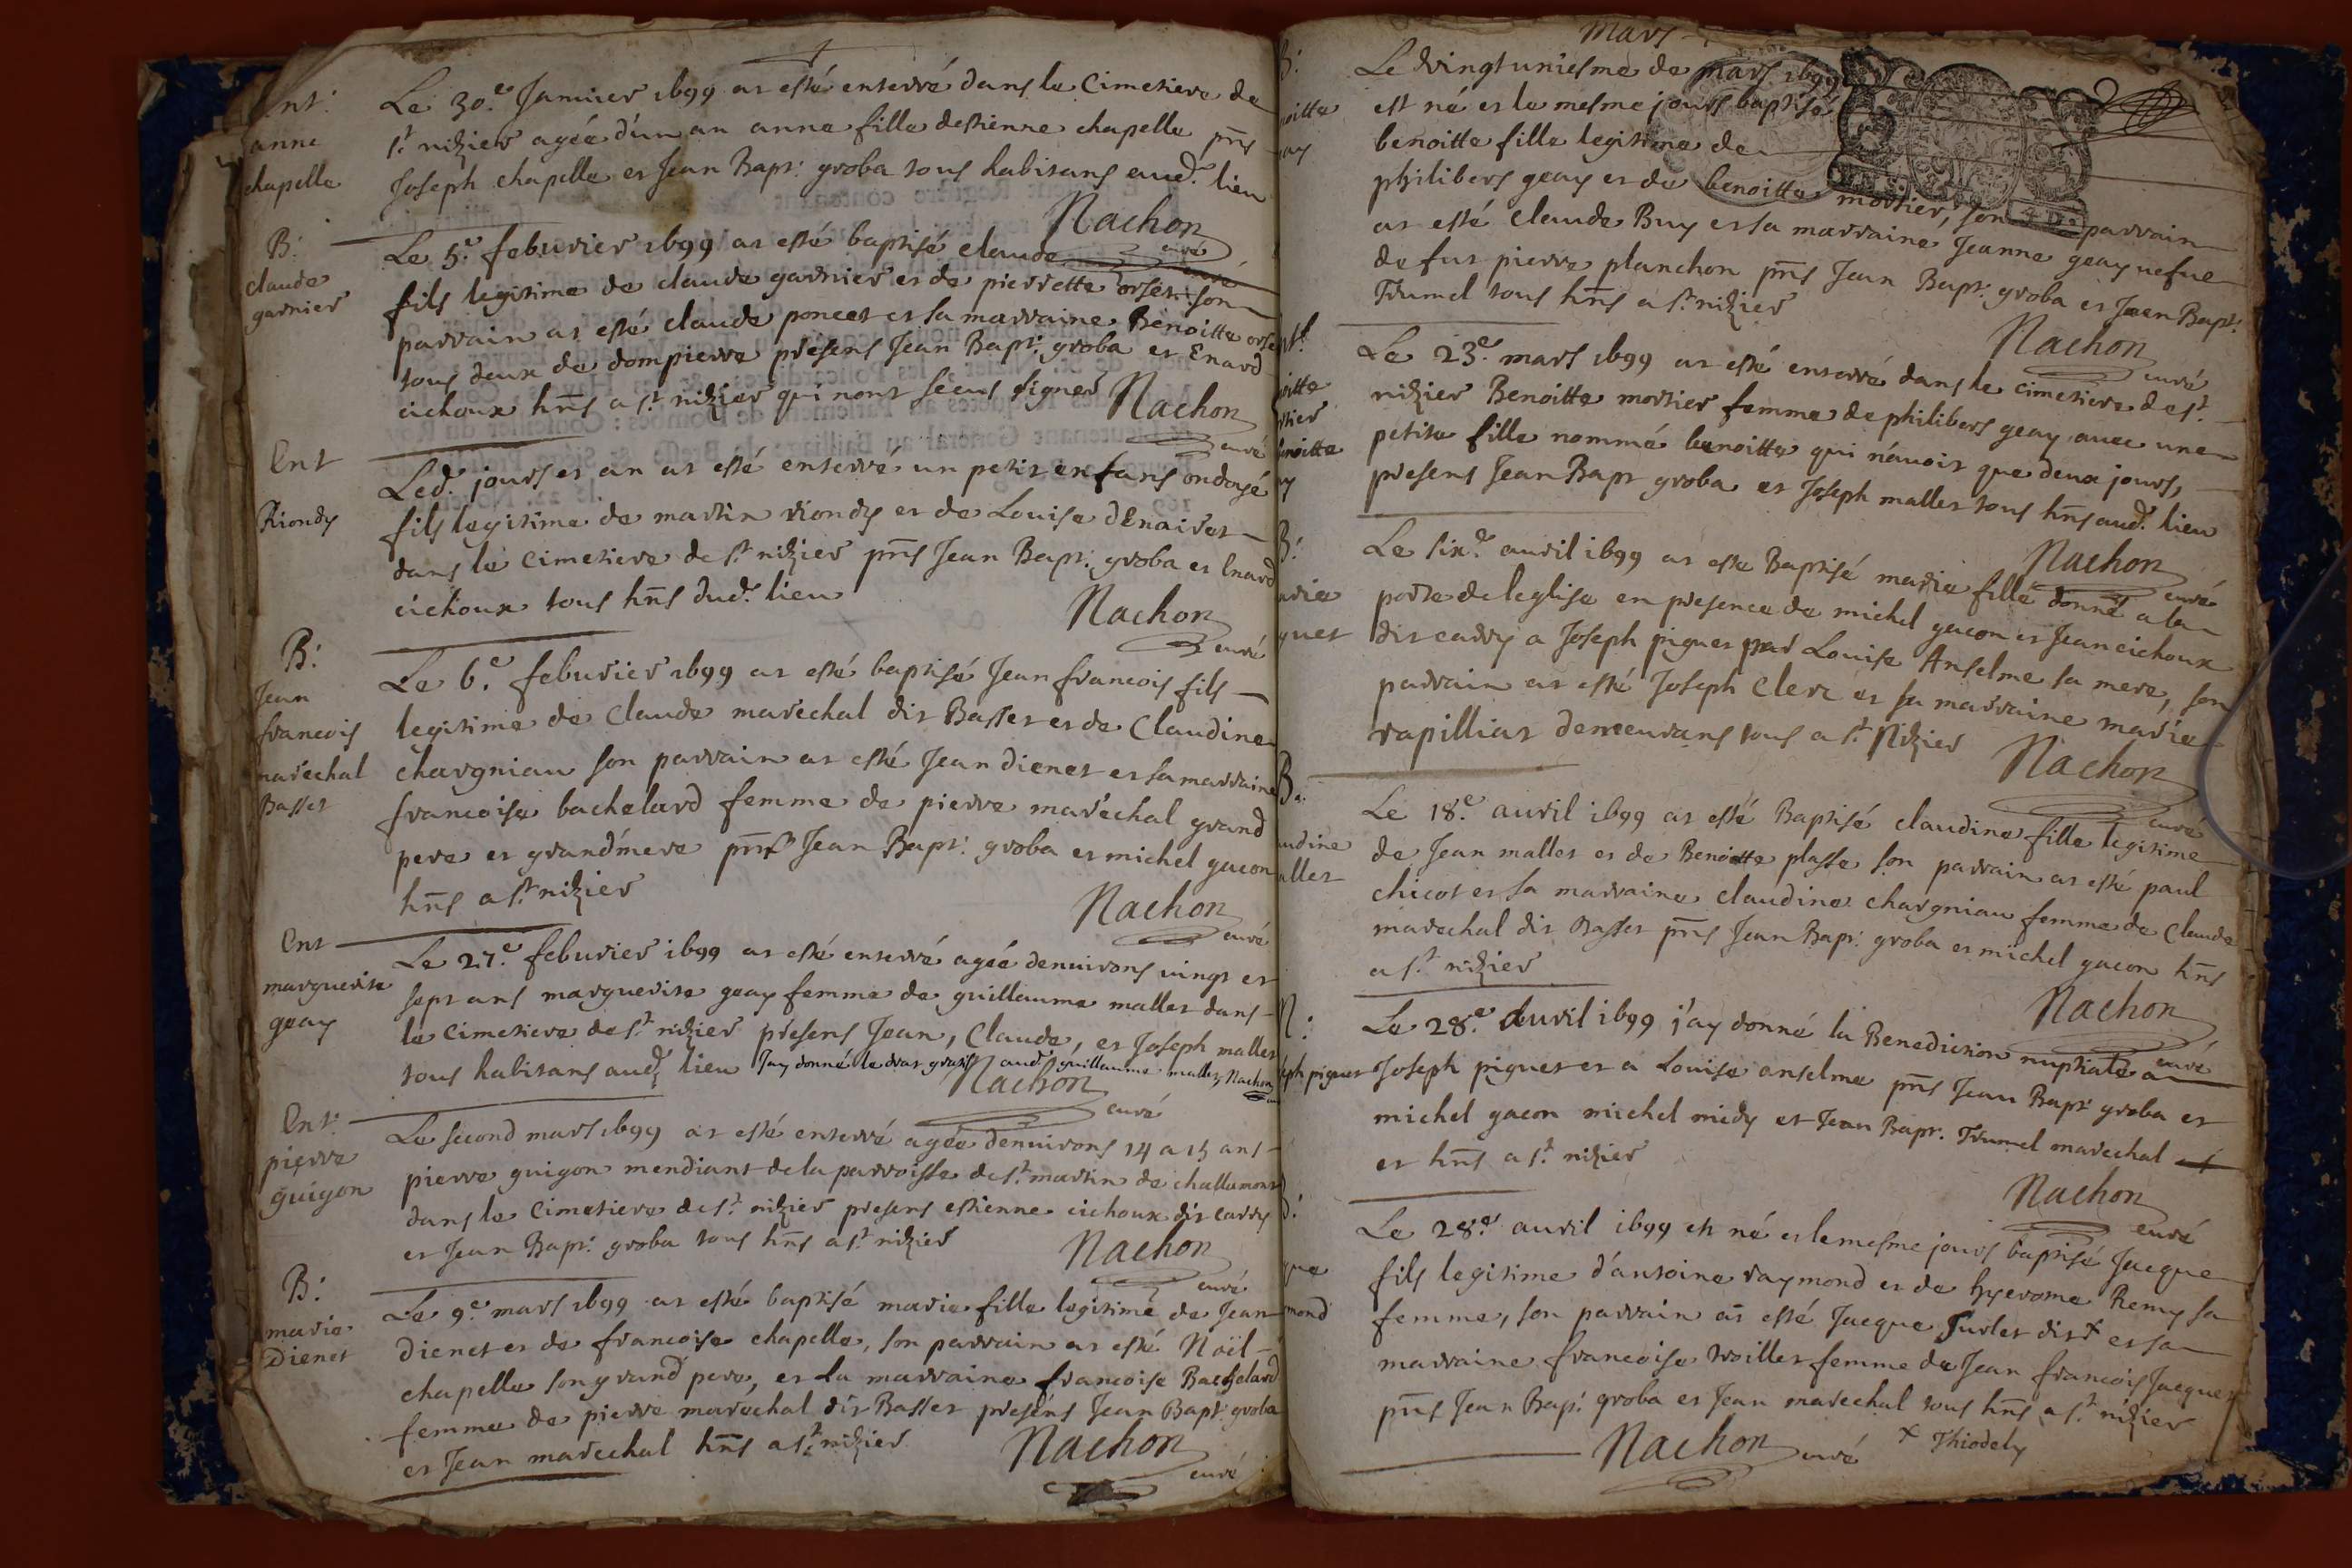 Ent:
anne
chapelle
Le 30.e Januier 1699 at esté enterré dans le Cimetiere de
st. nizier agée d'un an anne fille destienne chapelle pnts
Joseph chapelle et Jean Bapt: groba tous habitans aud. lieu
Nachon
curé
B:
claude
garnier
Le 5.e feburier 1699 at esté baptisé claude
fils legitime de claude garnier et de pierrette orset son
parrain at esté claude poncet et sa marraine Benoitte orset
tous deux de dompierre presens Jean Bapt: groba et Enard
cichoux hns a st. nizier qui nont sceus signer
Nachon
curé
Ent
Riondy
Led. jours et an at esté enterré un petit enfant ondoyé
fils legitime de martin riondy et de Louise dEnaires
dans le cimetiere de st. nizier pns Jean Bapt: groba et Enard
cichoux tous hns dud. lieu
Nachon
curé
B:
Jean
francois
marechal
Basset
Le 6.e feburier 1699 at esté baptisé Jean francois fils
legitime de Claude marechal dit Basset et de Claudine
chargniau son parrain at esté Jean dienet et sa marraine
francoise bachelard femme de pierre maréchal grand
pere et grand'mere pnts Jean Bapt: groba et michel gacon
hns a st. nizier
Nachon
curé
Ent
marguerite
geay
Le 27.e feburier 1699 at esté enterré agéé denuirons uingt et
sept ans marguerite geay femme de guillaume mallet dans
le cimetiere de st. nizier presens Jean, Claude, et Joseph mallet
tous habitans aud. lieu Jay donné le drat gratis aud. guillaume mallet, Nachon
Nachon
curé
Ent:
pierre
guigon
Le second mars 1699 at esté enterré agée denuirons 14 a 15 ans
pierre guigon mendiant de la parroisse de st. martin de challamont
dans le Cimetiere de st. nizier presens estienne cichoux dit cadry
et Jean Bapt: groba tous hns a st. nizier
Nachon
curé
B:
marie
Dienet
Le 9.e mars 1699 at esté baptisé marie fille legitime de Jean
dienet et de francoise chapelle, son parrain at esté Noël
chapelle son grand pere, et la marraine francoise Bachelard
femme de pierre marechal dit Basset presens Jean Bapt: groba
et Jean marechal hns a st. nizier
Nachon
curé
mars
B:
noitte
eay
Le vingt uniesme de mars 1699
est né et le mesme jours baptisé
benoitte fille legitime de
philibert geay et de benoitte mortier, son parrain
at esté claude Buy et sa marraine Jeanne geay uefue
de fut pierre planchon pns Jean Bapt: groba et Jean Bapt:
Trumel tous hns a st. nizier
Nachon
curé
nt:
oitte
rtier
enoitte
ay
Le 23.e mars 1699 at esté enterré dans le cimetiere de st.
nizier Benoitte mortier femme de philibert geay auec une
petite fille nommé benoitte qui n'auoit que deux jours,
presens Jean Bapt groba et Joseph mallet tous hns aud. lieu
Nachon
curé
B:
arie
guet
Le six.e auril 1699 at este Baptisé marie fille donné a la
porte de leglise en presence de michel gacon et Jean cichoux
dit cadry a Joseph piguet par Louise Anselme sa mere, son
parrain at esté Joseph Clerc et sa marraine marie
rapilliat demeurans tous a st. Nizier
Nachon
curé
B:
audine
allet
Le 18.e auril 1699 at esté Baptisé claudine fille legitime
de Jean mallet et de Benoitte plasse son parrain at esté paul
chicot et sa marraine claudine chargniau femme de Claude
marechal dit Basset pns Jean Bapt: groba et michel gacon hns
a st. nizier
Nachon
curé
N:
eph piguet
Le 28.e Auril 1699 j'ay donné la Benediction nuptiale a
Joseph piguet et a Louise anselme pns Jean Bapt: groba et
michel gacon michel midy et Jean Bapt. Trumel marechal
et hns a st. nizier
Nachon
curé
B:
que
mond
Le 28.e auril 1699 est né et le mesme jours baptisé Jacque
fils legitime d'antoine raymond et de hyerome Remy sa
femme, son parrain at esté Jacque Jurlet dit + et sa
marraine francoise woillet femme de Jean francois Jacquet
pns Jean Bap: groba et Jean marechal tous hns a st. nizier
Nachon curé
+ Thiodely